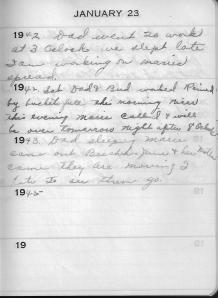 JANUARY 23
1942 Dad went to work
at 3 Oclock we slept late
I am working on maries
spread.
1942. Sat Dad & Bud waked Rained
by bucket full this morning nice
this evening Marie call & will
be over tomorrow night after 8 Oclock
1943. Dad sleeping Marie
came out & her
came they are moving I
hate to see them go.
1945
19